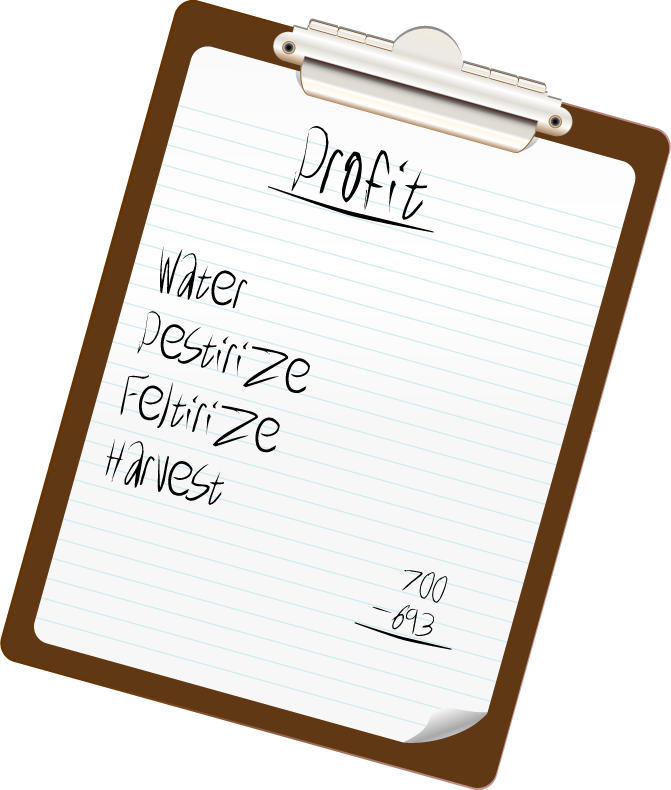 Profit
Water
Pestirize
Feltirize
Harvest
700
-693